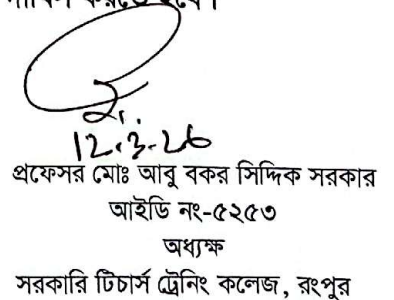 দাখিল করতে হবে।
12.3.26
প্রফেসর মোঃ আবু বকর সিদ্দিক সরকার
আইডি নং-৫২৫৩
অধ্যক্ষ
সরকারি টিচার্স ট্রেনিং কলেজ, রংপুর